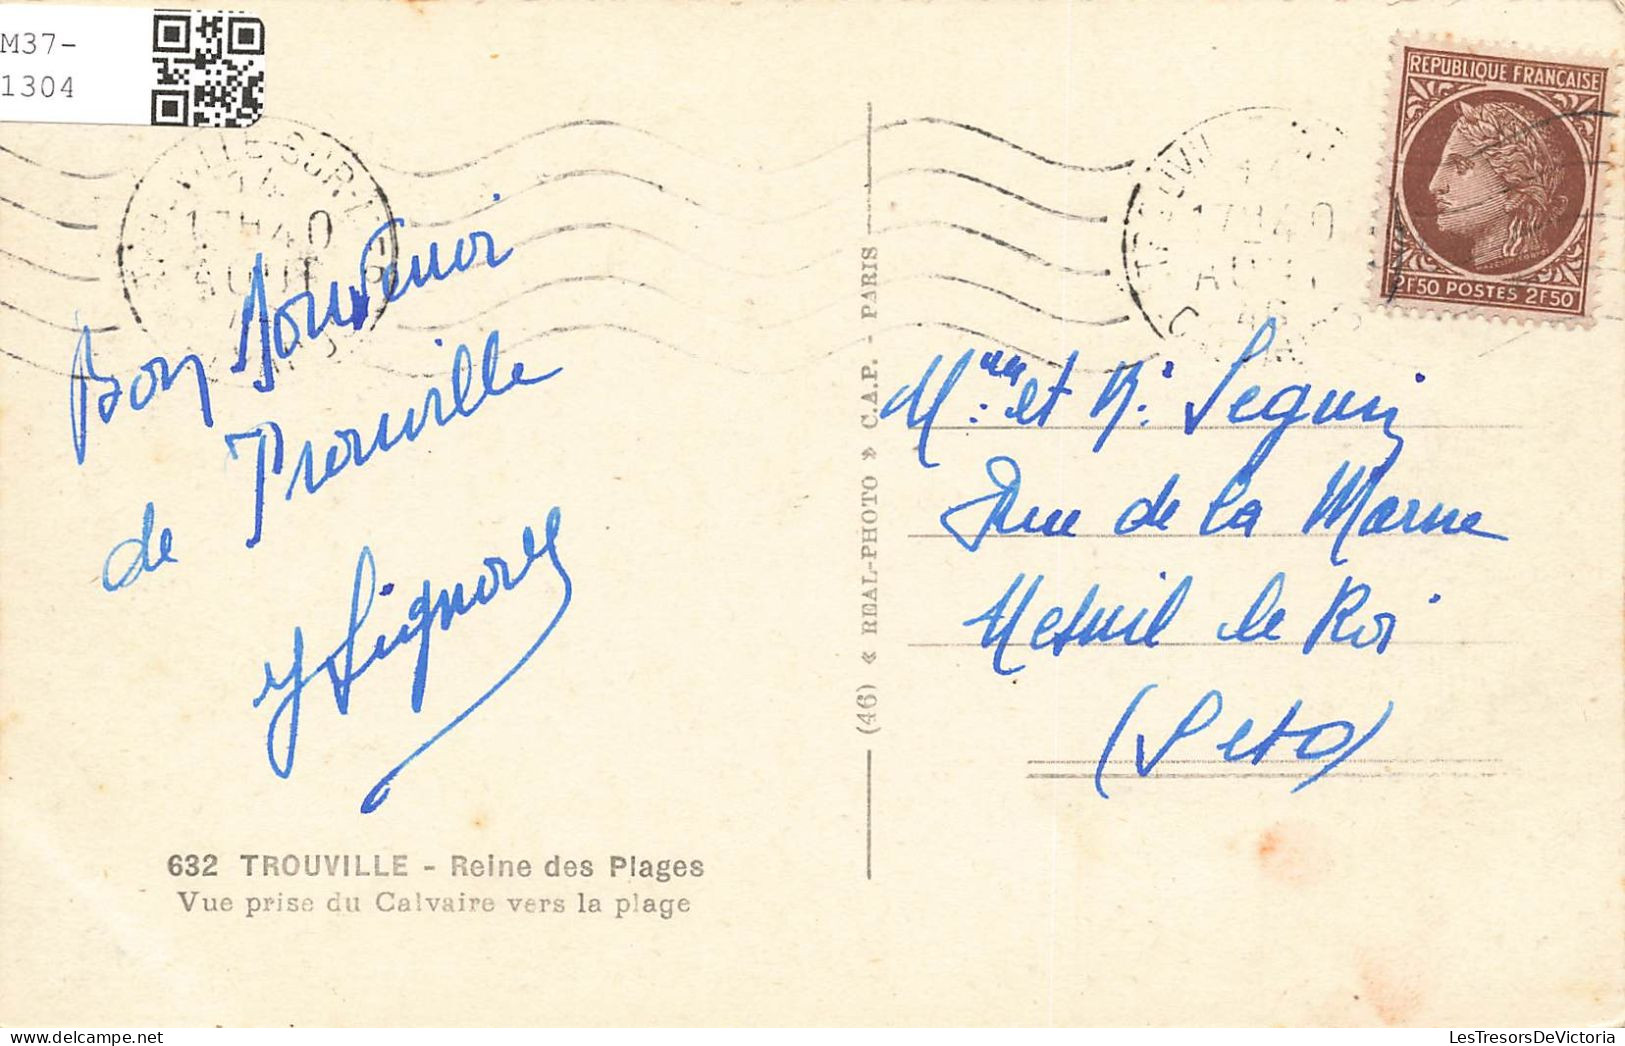 M37-
1304
Bon Souvenir
de Trouville
632 TROUVILLE - Reine des Plages
Vue prise du Calvaire vers la plage
(46) « REAL-PHOTO » C.A.P. - PARIS
17H40
AOUT
TROUVILLE-SUR-
17H40
AOUT
46
REPUBLIQUE FRANÇAISE
2F50 POSTES 2F50
Mme et Mr Seguin
Rue de la Marne
Mesnil le Roi
(S et O)
LesTresorsDeVictoria